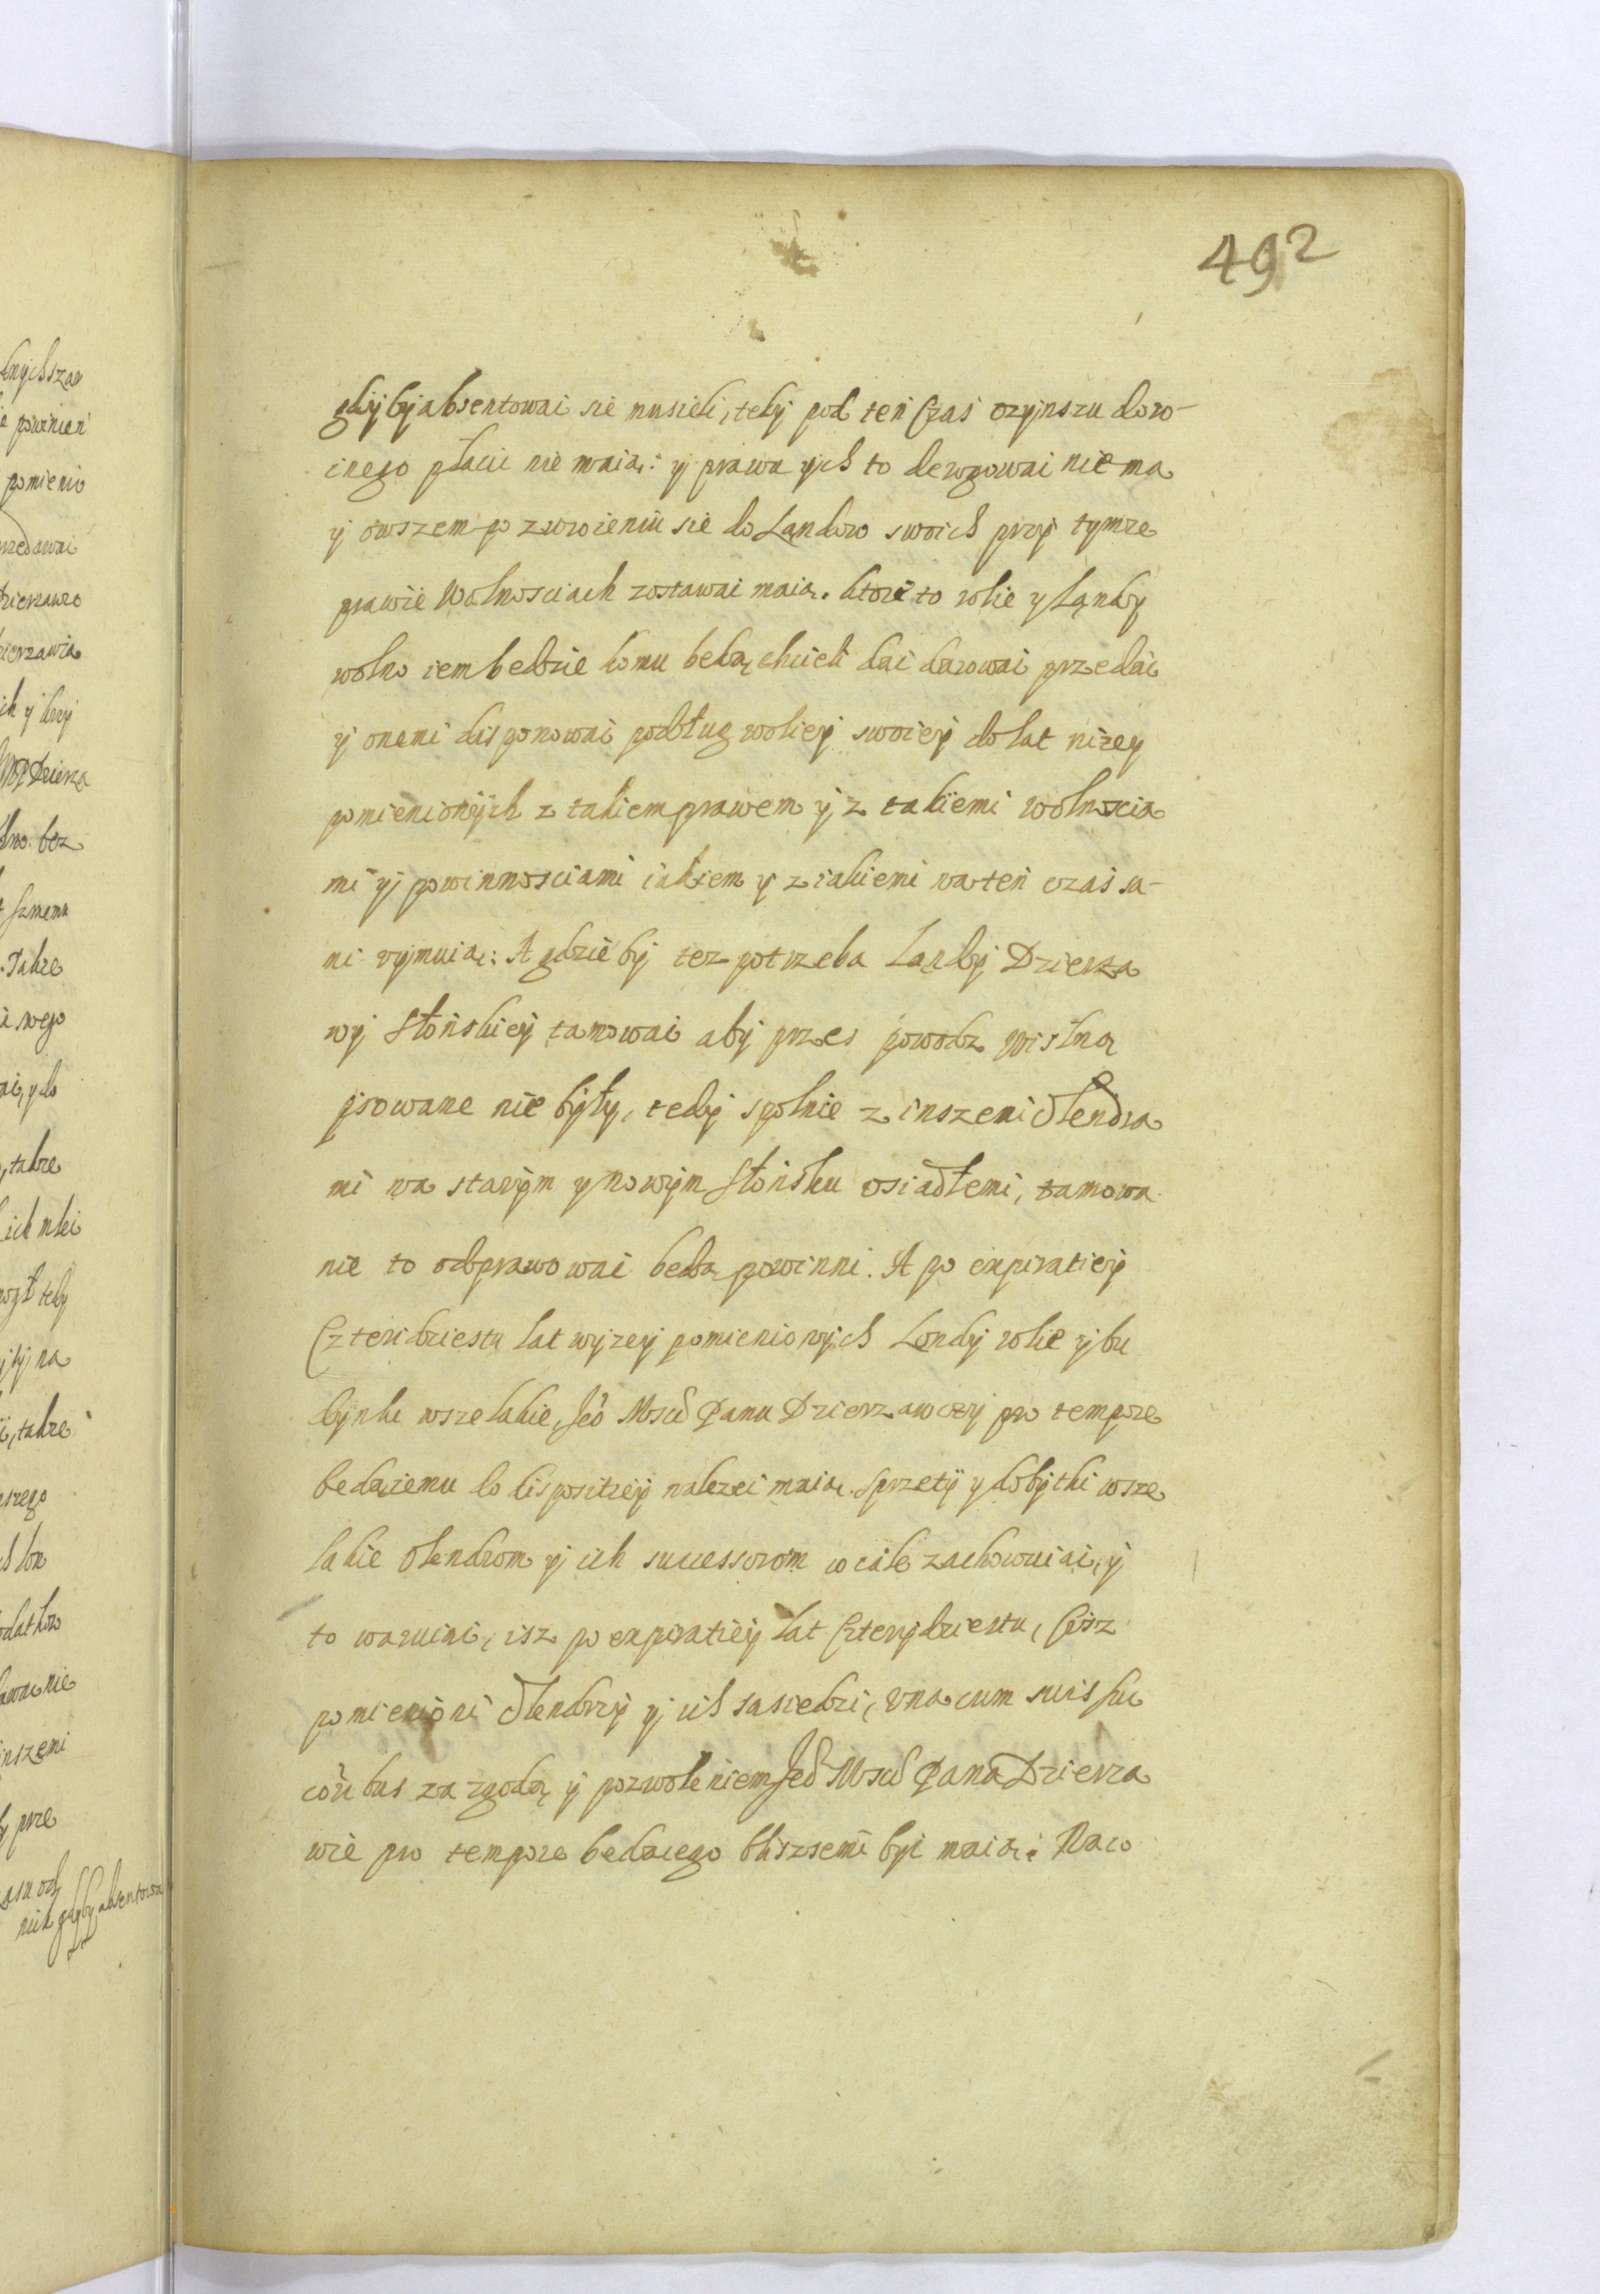 492
gdyby absentowac sie musieli, tedy pod ten Czas czynszu doro-
cnego płacic nie maią: y prawa ych to derogowac nie ma
y owszem po zwroceniu sie do Landow swoich przy tymze
prawie Wolnosciach zostawac maią. ktore to rolie y Landy
wolno iem bedzie komu bedą chcieli dac darowac przedac
y onemi disponowac podług woliey swoiey do lat nizey
pomienionych z takiem prawem y z takiemi wolnoscia
mi y powinnosciami iakiem y z iakiemi na ten czas sa-
mi trzymaią: A gdzie by tez potrzeba Landy Dzierza
wy Słońskiey tamowac aby przes powodz Wisłną
psowane nie były, tedy spolnie z inszemi Olendra
mi na starym y nowym Słońsku osiadłemi, tamowa
nie to odprawowac beda powinni. A po expiratiey
Czteridziestu lat wyzey pomienionych Londy rolie y bu
dynki wszelakie, Jeo Msci Panu Dzierzawcey pro tempore
bedacemu do dispositiey nalezec maią. Sprzety y dobytki wsze
lakie Olendrom y ich successorom wcale zachowuiąc, y
to waruiąc, isz po expiratiey lat Czterydziestu, Cisz
pomienioni Olendrzy y ich sasiedzi, vna cum suis suc
coribus za zgodą y pozwoleniem Jeo Msci Pana Dzierza
wce pro tempore bedacego bliszsemi byc maią: Naco